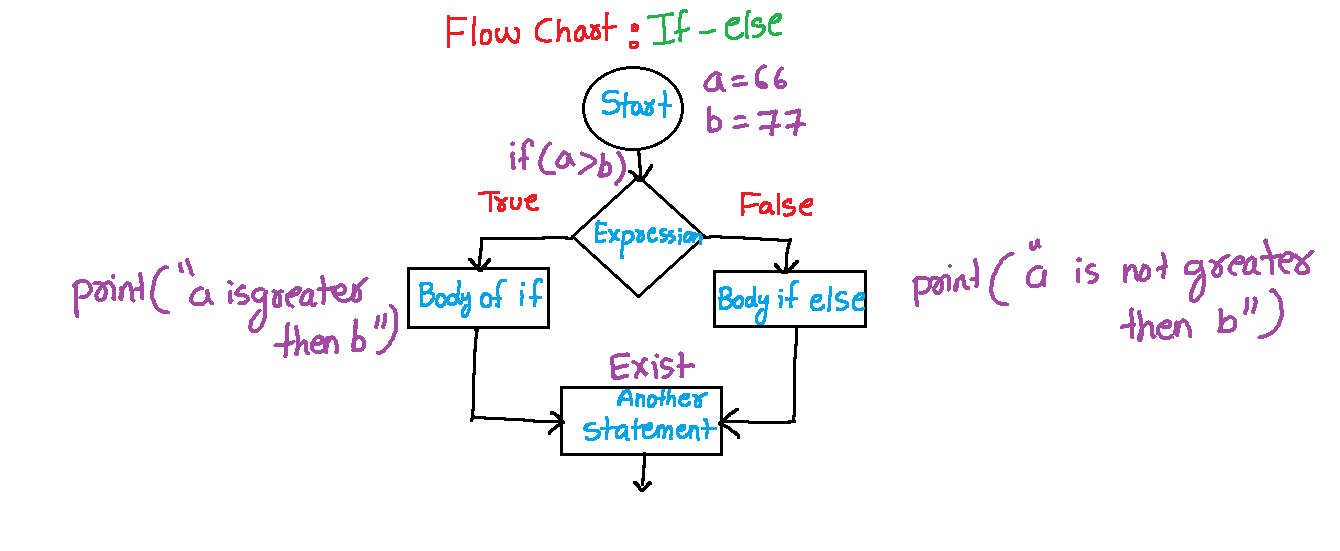 Flow Chart : If - else
Start
a = 66
b = 77
if (a>b)
True
False
Expression
print("a isgreater
then b")
Body of if
Body if else
print("a is not greater
then b")
Exist
Another
statement